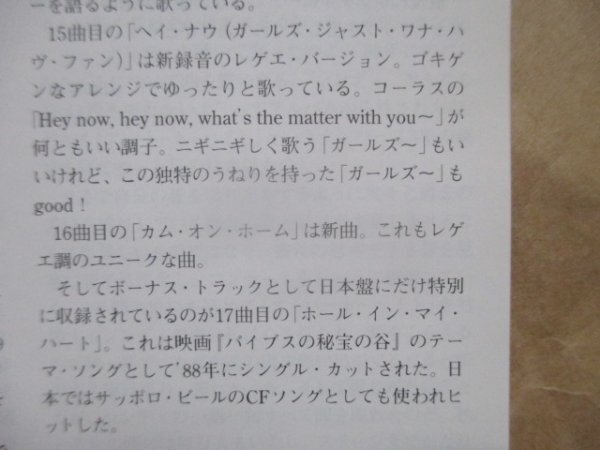 ーを語るように歌っている。
15曲目の「ヘイ・ナウ(ガールズ・ジャスト・ワナ・ハ
ヴ・ファン)」は新録音のレゲエ・バージョン。ゴキゲ
ンなアレンジでゆったりと歌っている。コーラスの
「Hey now, hey now, what's the matter with you〜」が
何ともいい調子。ニギニギしく歌う「ガールズ〜」もい
いけれど、この独特のうねりを持った「ガールズ〜」も
good!
16曲目の「カム・オン・ホーム」は新曲。これもレゲ
エ調のユニークな曲。
そしてボーナス・トラックとして日本盤にだけ特別
に収録されているのが17曲目の「ホール・イン・マイ・
ハート」。これは映画『バイブスの秘宝の谷』のテー
マ・ソングとして'88年にシングル・カットされた。日
本ではサッポロ・ビールのCFソングとしても使われヒ
ットした。